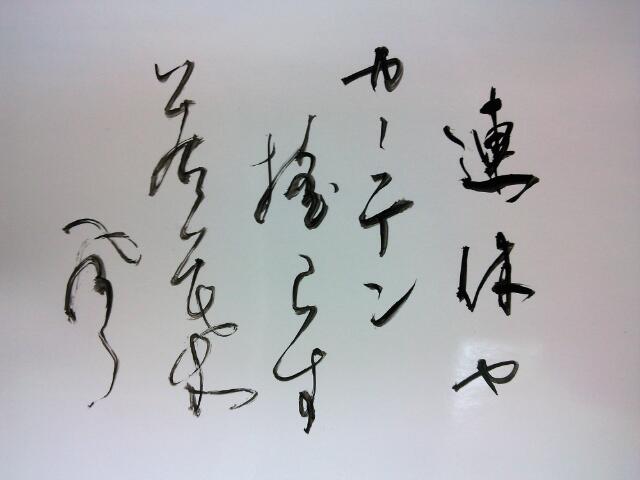 連休や
カーテン
揺らす
若葉東風